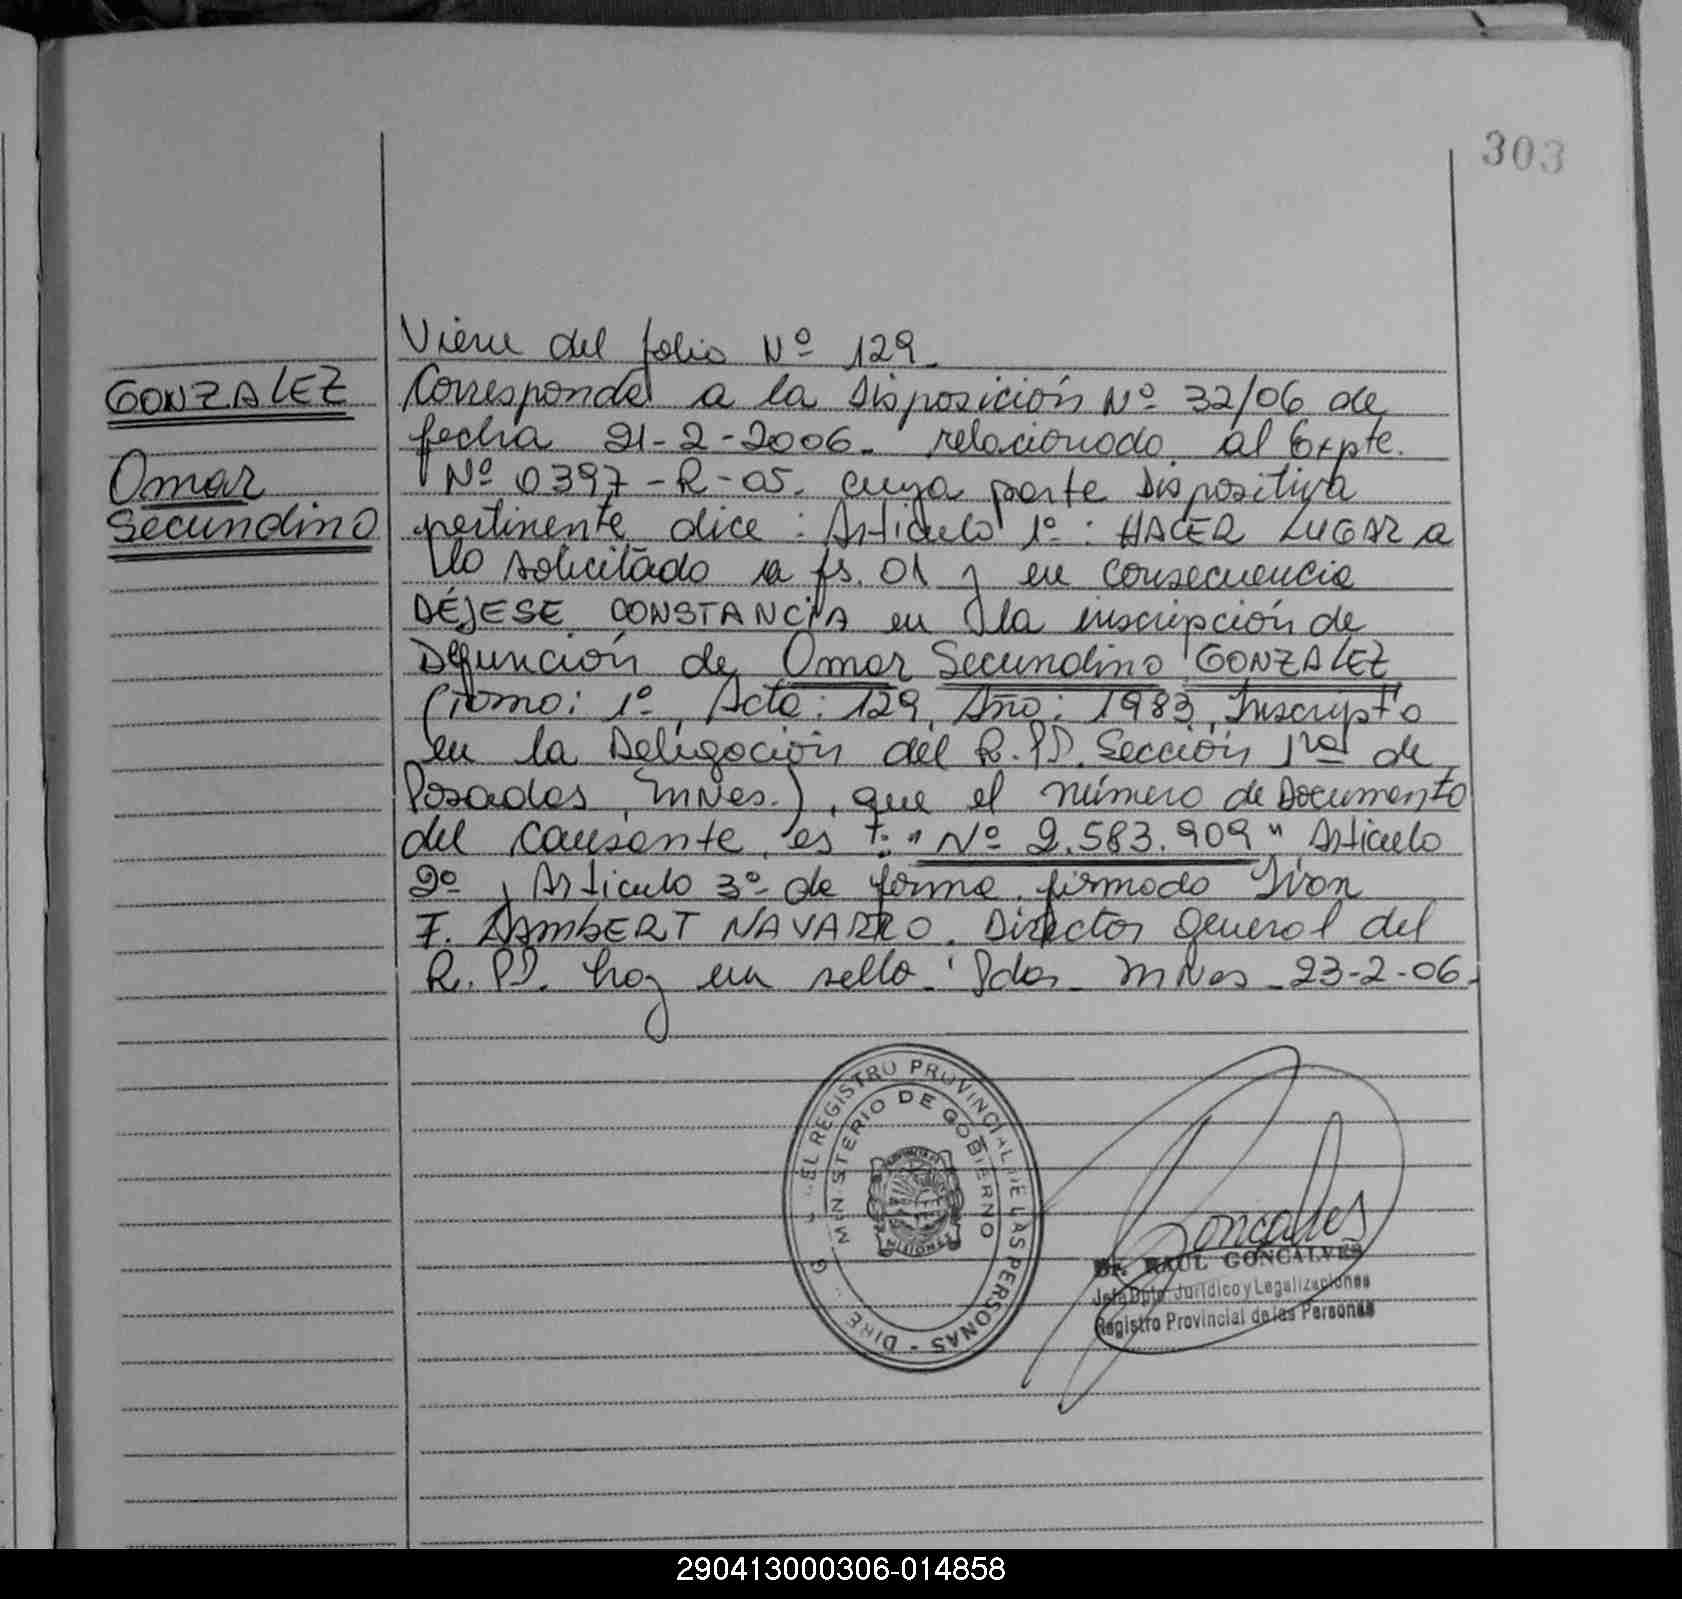 303
Viene del folio Nº 129.
GONZALEZ
Omar
Secundino
Corresponde a la Disposición Nº 32/06 de
fecha 21-2-2006. relacionado al Expte.
Nº 0397-R-05. cuya parte Dispositiva
pertinente dice: Artículo 1º: HACER LUGAR a
lo solicitado a fs. 01 y en consecuencia
DÉJESE CONSTANCIA en la inscripción de
Defunción de Omar Secundino GONZALEZ
(Tomo: 1º, Acta: 129, Año: 1983, Inscripto
en la Delegación del R.P.P. Sección 1ra de
Posadas, Mnes.), que el número de Documento
del causante es: "Nº 2.583.909" Artículo
2º, Artículo 3º de forma. firmado Ivon
F. LAMBERT NAVARRO. Director General del
R.P.P. hay un sello. Pdas. Mnes. 23-2-06.
EL REGISTRO PROVINCIAL DE LAS PERSONAS - DIRE
MINISTERIO DE GOBIERNO
MISIONES
Goncalves
Dr. RAUL GONCALVES
Jefe Dpto. Jurídico y Legalizaciones
Registro Provincial de las Personas
290413000306-014858